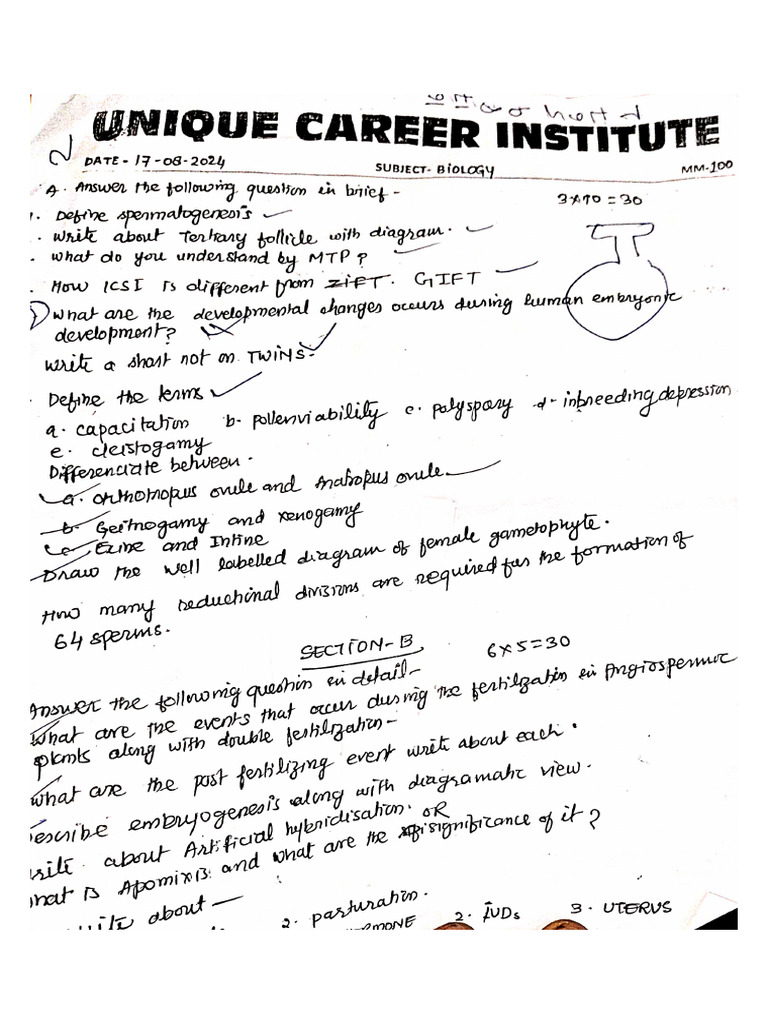 UNIQUE CAREER INSTITUTE
DATE - 17-08-2024 SUBJECT- BIOLOGY MM-100
A. Answer the following question in brief - 3x10=30
1. Define spermatogenesis
. Write about Tertiary follicle with diagram.
. What do you understand by MTP?
. How ICSI Is different from ZIFT. GIFT
What are the developmental changes occurs during human embryonic
development?
Write a short not on TWINS.
. Define the terms
a. capacitation b- pollenviability c. polyspory d- inbreeding depression
e. cleistogamy
Differenciate between.
a. Orthotropus ovule and Anatropus ovule.
b- Geitnogamy and xenogamy
c. Exine and Intine
Draw the well labelled diagram of female gametophyte.
How many reductinal divisions are required for the formation of
64 sperms.
SECTION-B 6x5=30
Answer the following question in detail-
What are the events that occur during the fertilization in Angiospermic
plants along with double fertilization-
What are the post fertilizing event write about each.
escribe embryogenesis along with diagramatic view.
write about Artificial hybridisation. OR
what is Apomixis and what are the significance of it?
write about —
2. parturation.
RMONE 2. IUDs 3. UTERUS